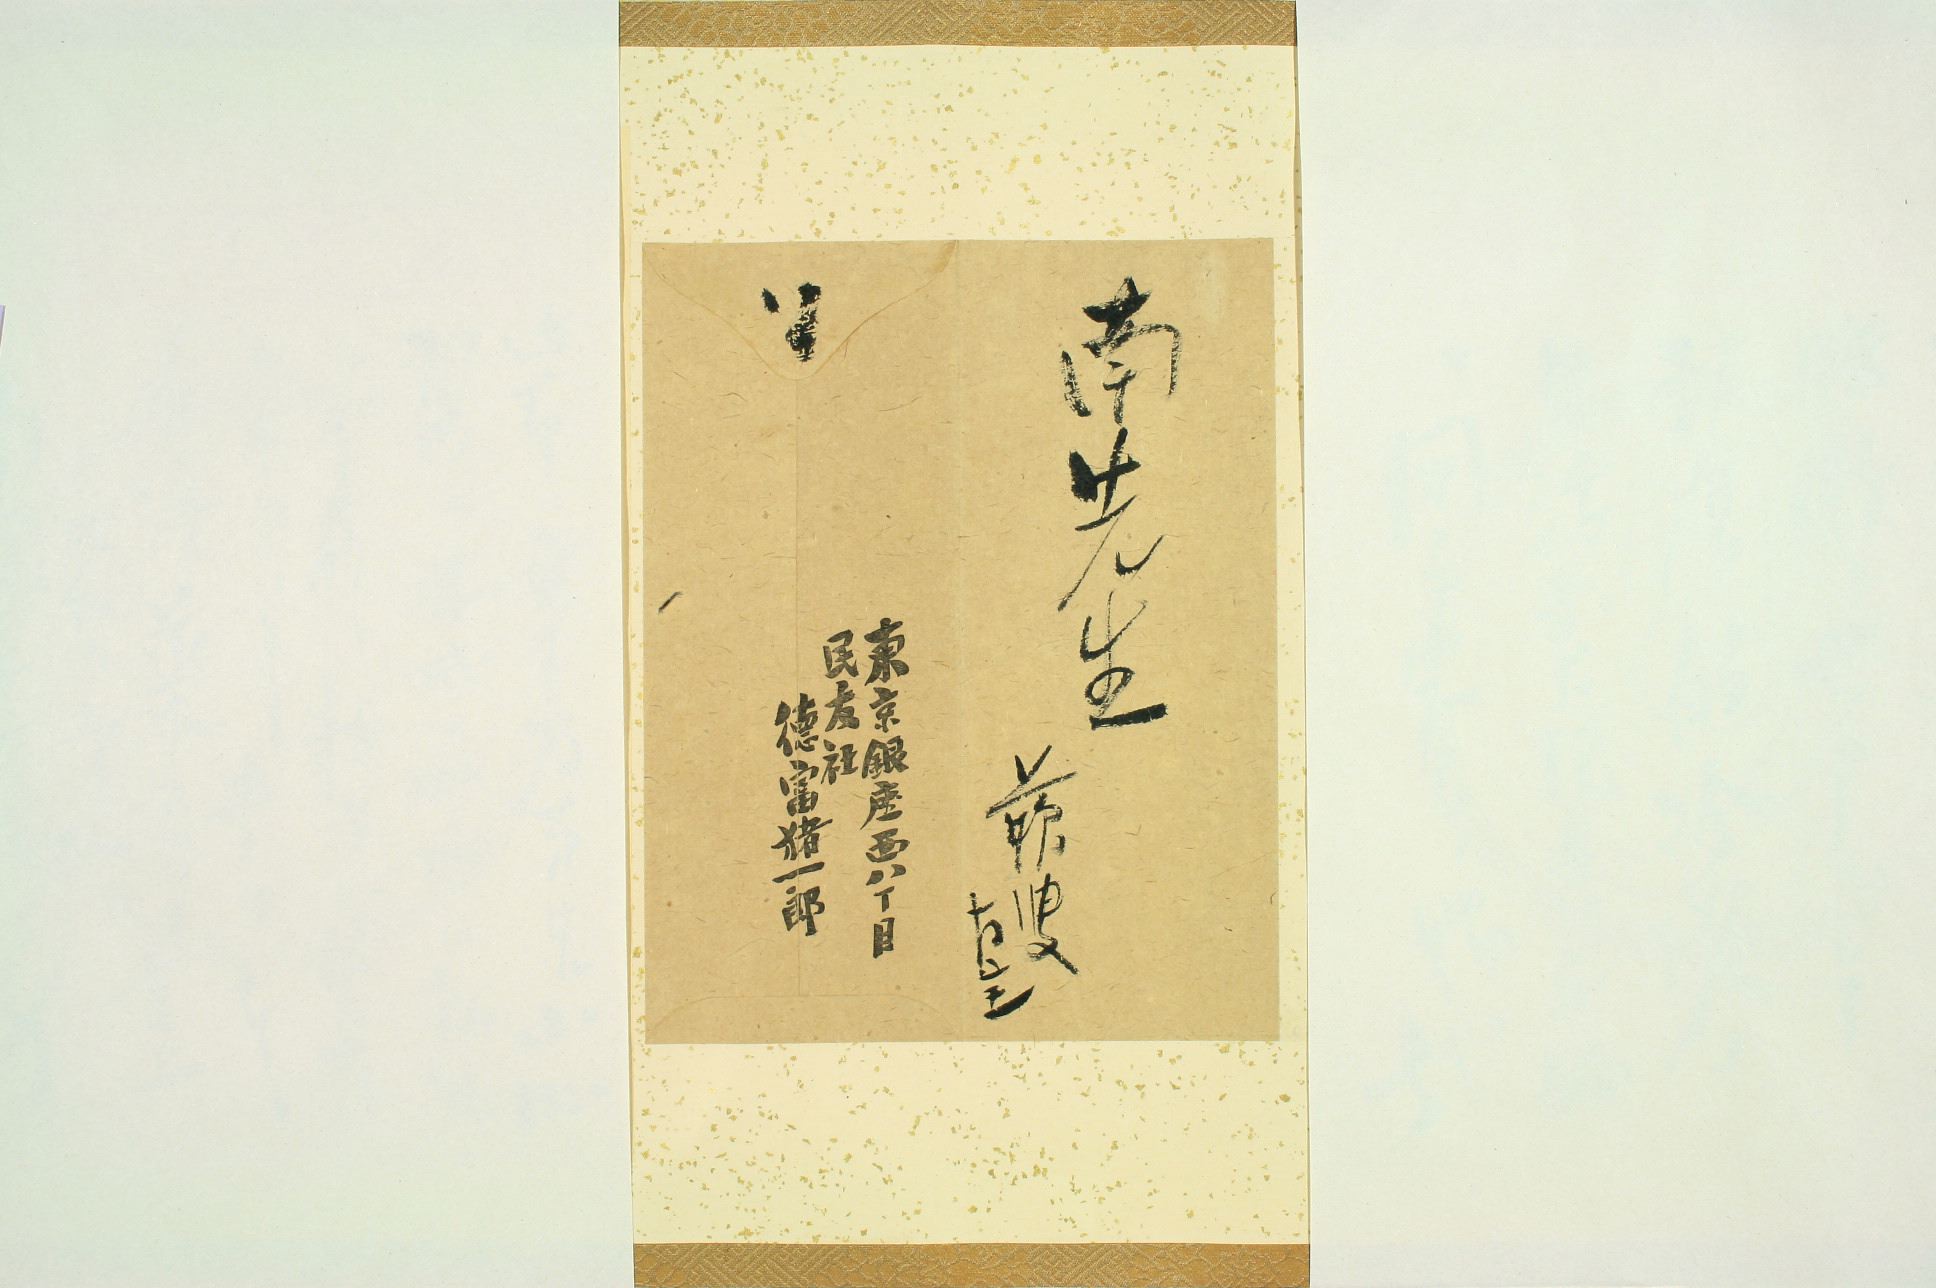 南先生
蘇叟
東京銀座西八丁目
民友社
徳富猪一郎